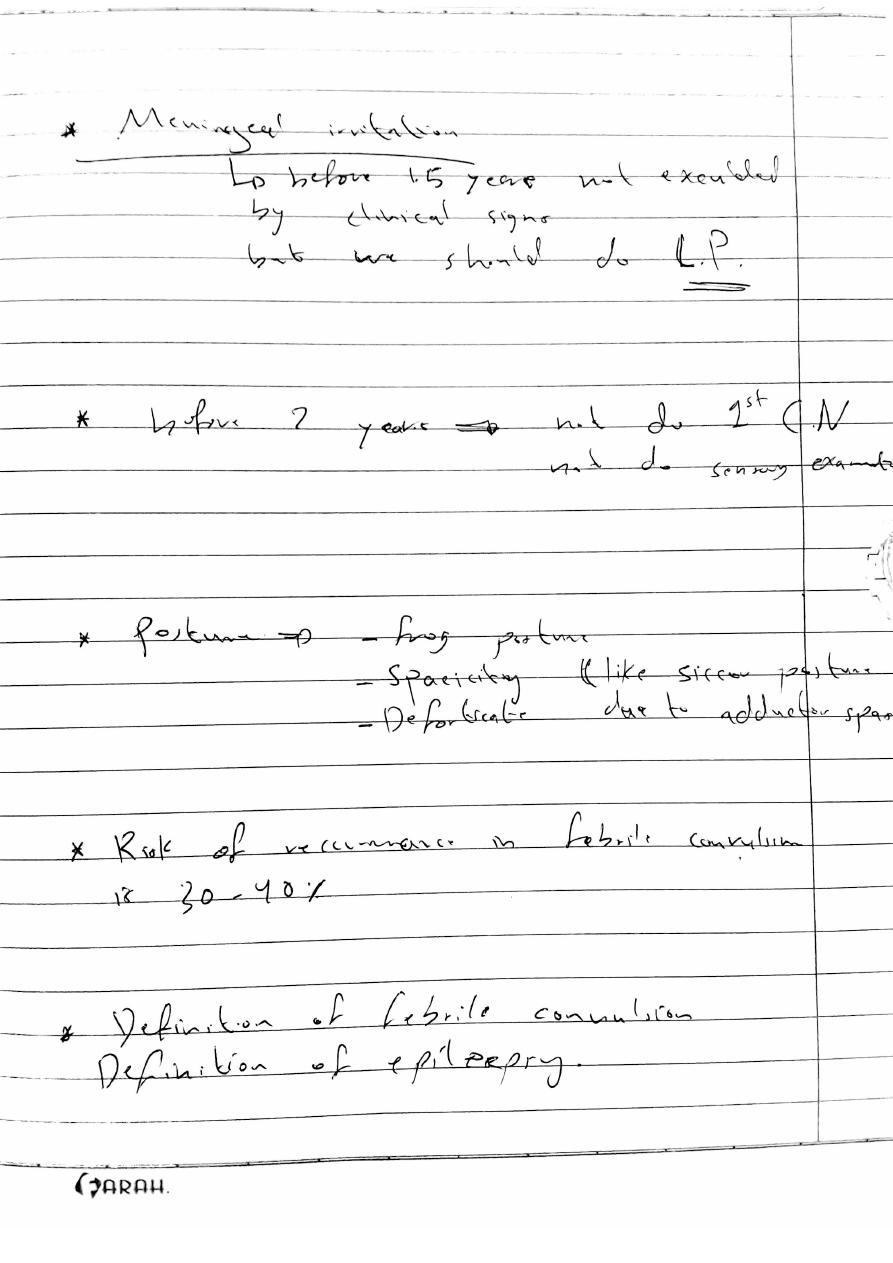 * Meningeal irritation
↳ before 1.5 years not excluded
by clinical signs
but we should do L.P.
* before 2 years ⇒ not do 1st C.N
not do sensory
* Posture ⇒ - frog posture
- Spacicity (like posture
- due to adductor spas
* Risk of recurrence in febrile convulsion
is 30-40%
* Definition of febrile convulsion
Definition of epileepry.